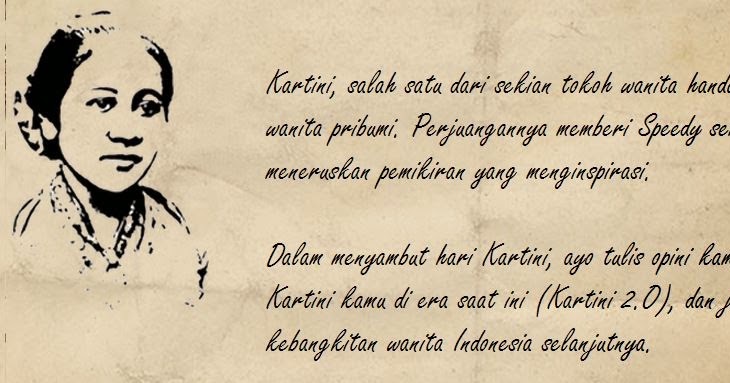 Kartini, salah satu dari sekian tokoh wanita
wanita pribumi. Perjuangannya memberi Speedy
meneruskan pemikiran yang menginspirasi.
Dalam menyambut hari Kartini, ayo tulis opini
Kartini kamu di era saat ini (Kartini 2.0), dan
kebangkitan wanita Indonesia selanjutnya.